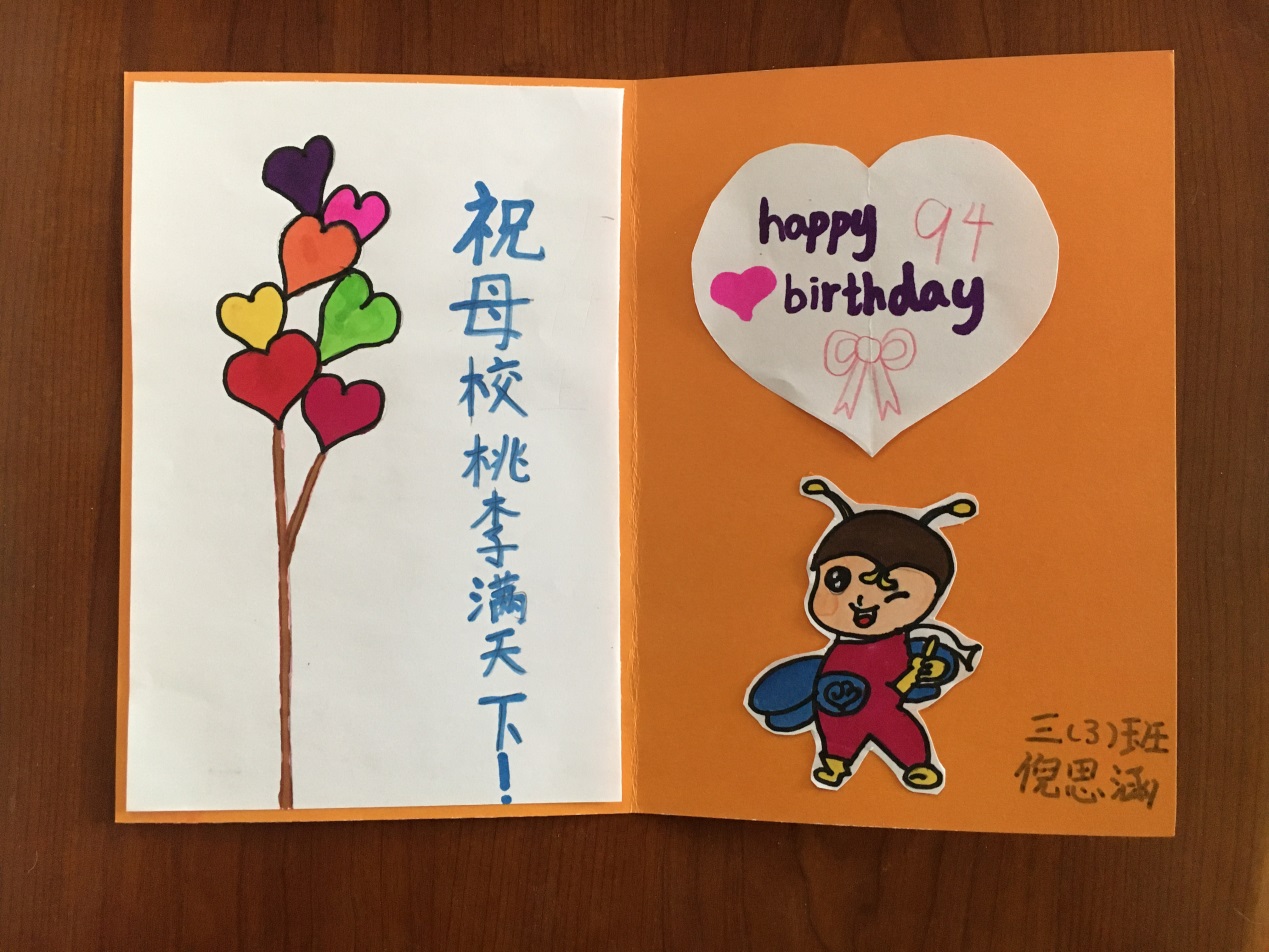 祝母校桃李满天下!
happy 94
birthday
三(3)班
倪思涵